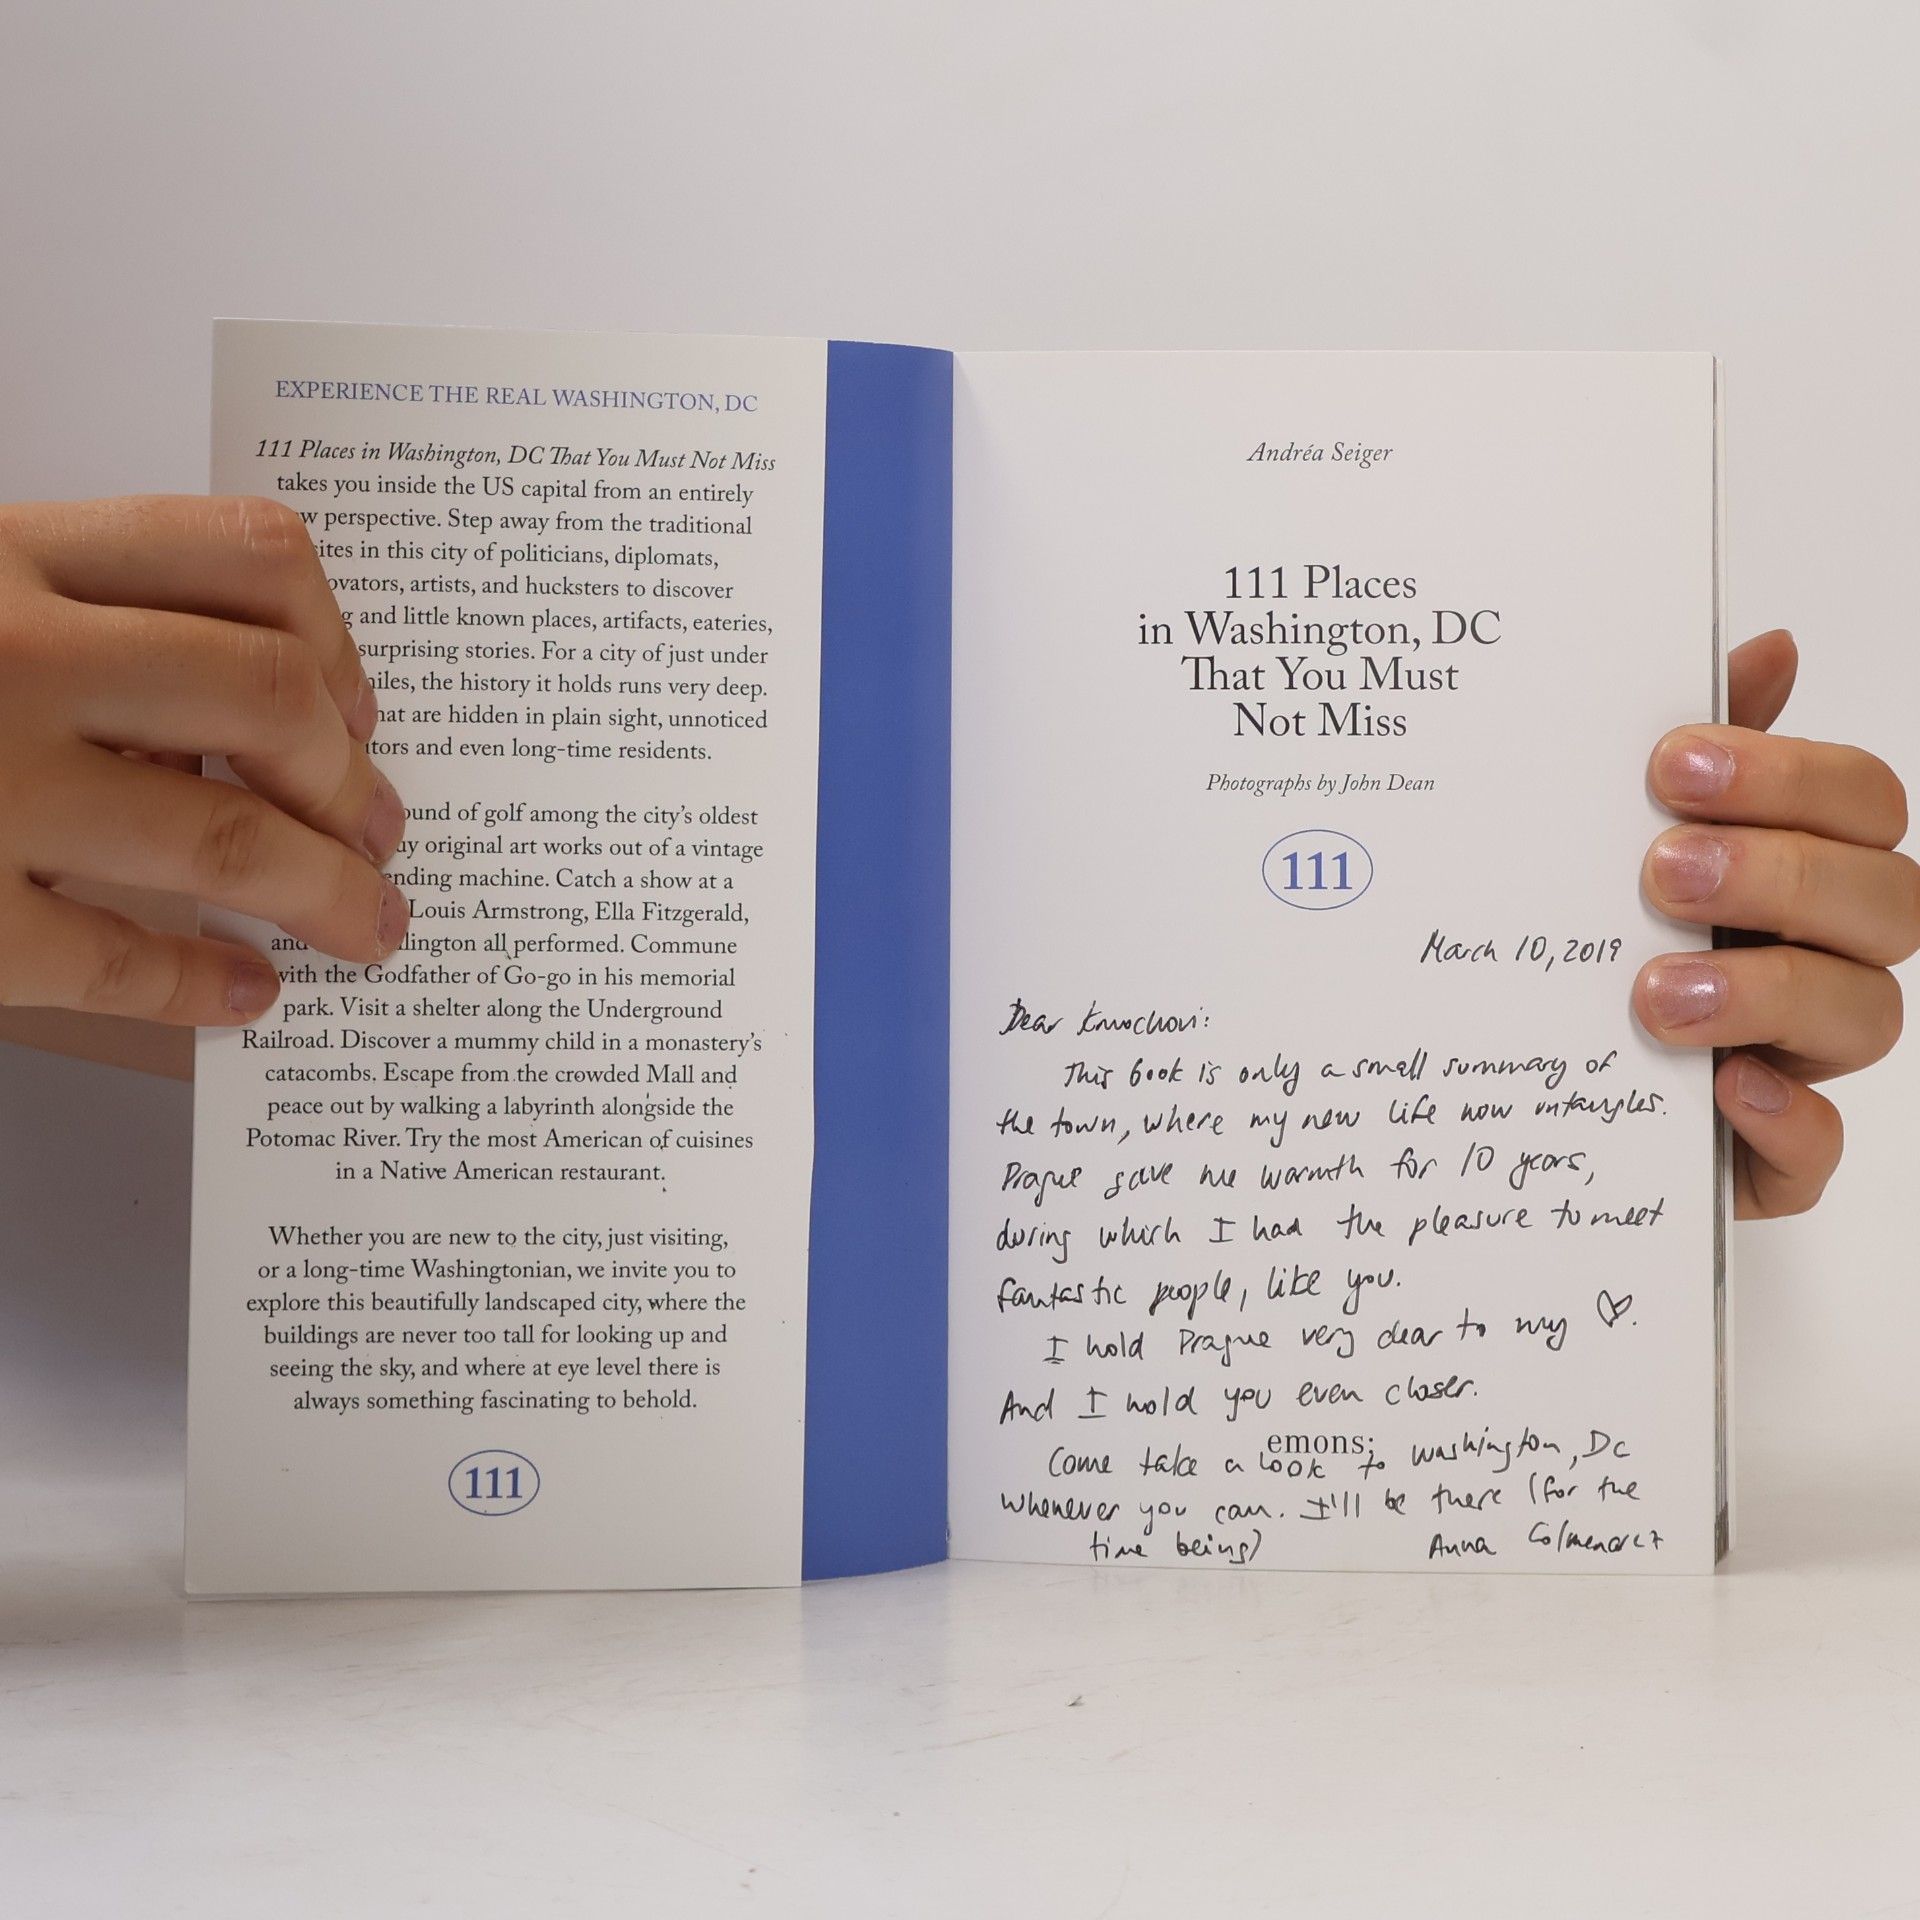 EXPERIENCE THE REAL WASHINGTON, DC
111 Places in Washington, DC That You Must Not Miss
takes you inside the US capital from an entirely
w perspective. Step away from the traditional
ites in this city of politicians, diplomats,
ovators, artists, and hucksters to discover
g and little known places, artifacts, eateries,
surprising stories. For a city of just under
iles, the history it holds runs very deep.
hat are hidden in plain sight, unnoticed
itors and even long-time residents.
ound of golf among the city's oldest
uy original art works out of a vintage
ending machine. Catch a show at a
Louis Armstrong, Ella Fitzgerald,
and llington all performed. Commune
with the Godfather of Go-go in his memorial
park. Visit a shelter along the Underground
Railroad. Discover a mummy child in a monastery's
catacombs. Escape from the crowded Mall and
peace out by walking a labyrinth alongside the
Potomac River. Try the most American of cuisines
in a Native American restaurant.
Whether you are new to the city, just visiting,
or a long-time Washingtonian, we invite you to
explore this beautifully landscaped city, where the
buildings are never too tall for looking up and
seeing the sky, and where at eye level there is
always something fascinating to behold.
111
Andréa Seiger
111 Places
in Washington, DC
That You Must
Not Miss
Photographs by John Dean
111
March 10, 2019
Dear
This book is only a small summary of
the town, where my new life now untangles.
Prague gave me warmth for 10 years,
during which I had the pleasure to meet
fantastic people, like you.
I hold Prague very dear to my ♡.
And I hold you even closer.
emons:
Come take a look to Washington, DC
whenever you can. I'll be there (for the
time being) Anna Colmenarez